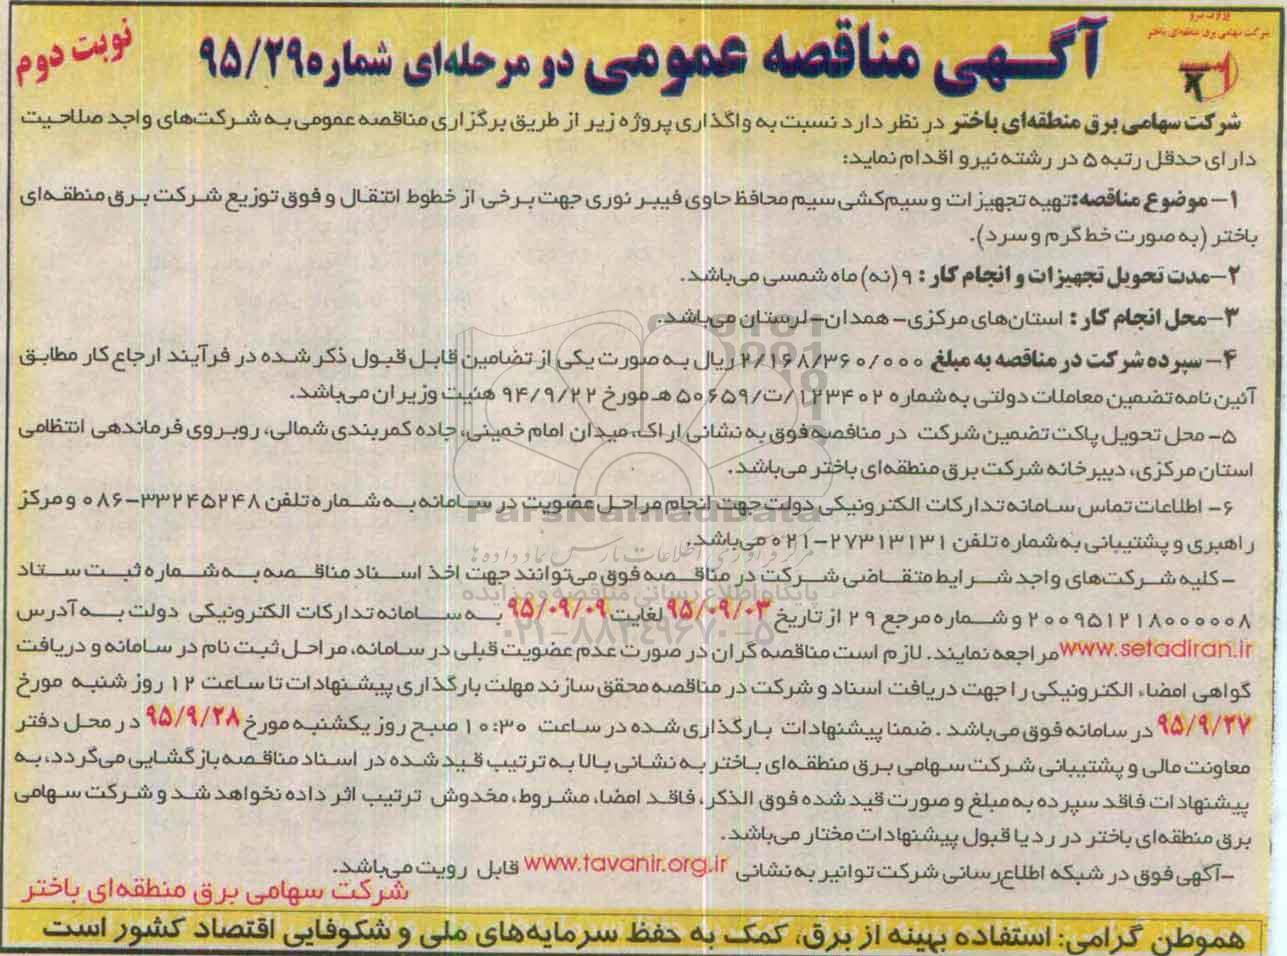 وزارت نیرو
شرکت سهامی برق منطقه‌ای باختر
آگهی مناقصه عمومی دو مرحله‌ای شماره ۹۵/۲۹
نوبت دوم
شرکت سهامی برق منطقه‌ای باختر در نظر دارد نسبت به واگذاری پروژه زیر از طریق برگزاری مناقصه عمومی به شرکت‌های واجد صلاحیت
دارای حدقل رتبه ۵ در رشته نیرو اقدام نماید:
۱- موضوع مناقصه: تهیه تجهیزات و سیم‌کشی سیم محافظ حاوی فیبر نوری جهت برخی از خطوط انتقال و فوق توزیع شرکت برق منطقه‌ای
باختر (به صورت خط گرم و سرد).
۲- مدت تحویل تجهیزات و انجام کار : ۹ (نه) ماه شمسی می‌باشد.
۳- محل انجام کار : استان‌های مرکزی- همدان- لرستان می‌باشد.
۴- سپرده شرکت در مناقصه به مبلغ ۲/۱۶۸/۳۶۰/۰۰۰ ریال به صورت یکی از تضامین قابل قبول ذکر شده در فرآیند ارجاع کار مطابق
آئین نامه تضمین معاملات دولتی به شماره ۱۲۳۴۰۲/ت/۵۰۶۵۹ هـ مورخ ۹۴/۹/۲۲ هئیت وزیران می‌باشد.
۵- محل تحویل پاکت تضمین شرکت در مناقصه فوق به نشانی اراک، میدان امام خمینی، جاده کمربندی شمالی، روبروی فرماندهی انتظامی
استان مرکزی، دبیرخانه شرکت برق منطقه‌ای باختر می‌باشد.
۶- اطلاعات تماس سامانه تدارکات الکترونیکی دولت جهت انجام مراحل عضویت در سامانه به شماره تلفن ۳۳۲۴۵۲۴۸-۰۸۶ و مرکز
راهبری و پشتیبانی به شماره تلفن ۲۷۳۱۳۱۳۱-۰۲۱ می‌باشد.
-کلیه شرکت‌های واجد شرایط متقاضی شرکت در مناقصه فوق می‌توانند جهت اخذ اسناد مناقصه به شماره ثبت ستاد
۲۰۰۹۵۱۲۱۸۰۰۰۰۰۸ و شماره مرجع ۲۹ از تاریخ ۹۵/۰۹/۰۳ لغایت ۹۵/۰۹/۰۹ به سامانه تدارکات الکترونیکی دولت به آدرس
www.setadiran.ir مراجعه نمایند. لازم است مناقصه گران در صورت عدم عضویت قبلی در سامانه، مراحل ثبت نام در سامانه و دریافت
گواهی امضاء الکترونیکی را جهت دریافت اسناد و شرکت در مناقصه محقق سازند مهلت بارگذاری پیشنهادات تا ساعت ۱۲ روز شنبه مورخ
۹۵/۹/۲۷ در سامانه فوق می‌باشد . ضمنا پیشنهادات بارگذاری شده در ساعت ۱۰:۳۰ صبح روز یکشنبه مورخ ۹۵/۹/۲۸ در محل دفتر
معاونت مالی و پشتیبانی شرکت سهامی برق منطقه‌ای باختر به نشانی بالا به ترتیب قید شده در اسناد مناقصه بازگشایی می‌گردد، به
پیشنهادات فاقد سپرده به مبلغ و صورت قید شده فوق الذکر، فاقد امضا، مشروط، مخدوش ترتیب اثر داده نخواهد شد و شرکت سهامی
برق منطقه‌ای باختر در رد یا قبول پیشنهادات مختار می‌باشد.
-آگهی فوق در شبکه اطلاع‌رسانی شرکت توانیر به نشانی www.tavanir.org.ir قابل رویت می‌باشد.
شرکت سهامی برق منطقه‌ای باختر
هموطن گرامی: استفاده بهینه از برق، کمک به حفظ سرمایه‌های ملی و شکوفایی اقتصاد کشور است
ParsNamadData
مرکز فرآوری اطلاعات پارس نماد داده‌ها
پایگاه اطلاع رسانی مناقصه و مزایده
۰۲۱-۸۸۳۴۹۶۷۰-۵